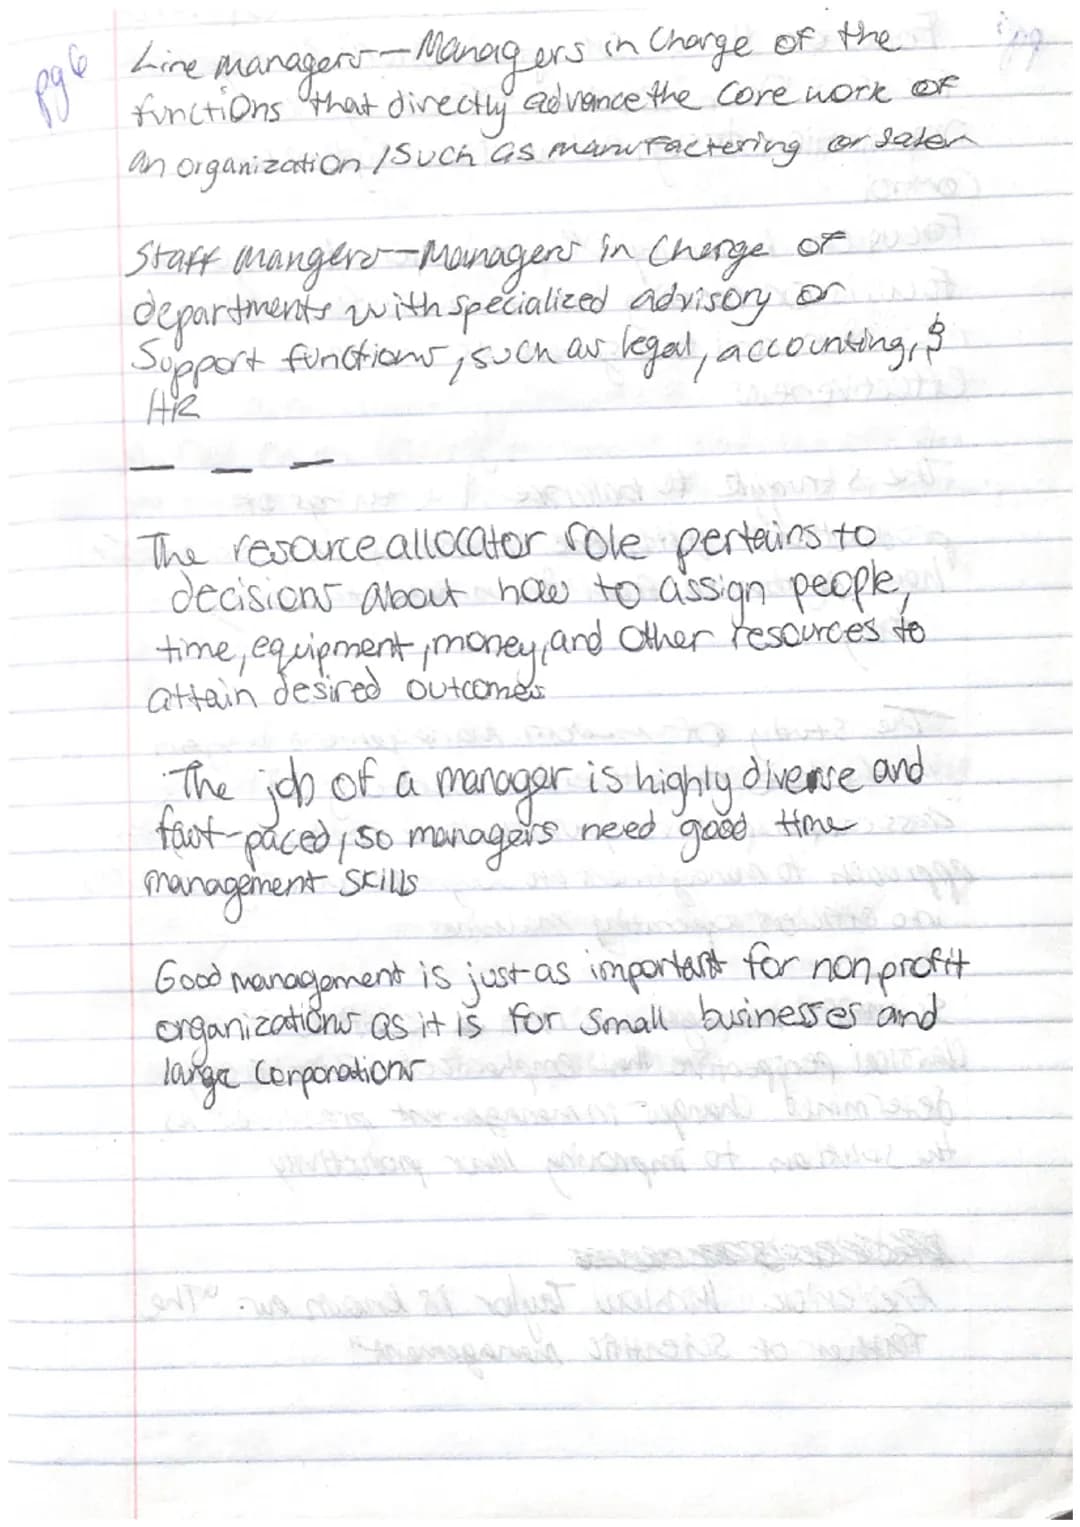 pg 6
Line managers—Managers in Charge of the
functions that directly advance the Core work of
an organization, Such as manufactering or sales
Staff mangers—Managers in Charge of
departments with specialized advisory or
Support functions, such as legal, accounting, &
HR
— — —
The resource allocator role pertains to
decisions about how to assign people,
time, equipment, money, and Other resources to
attain desired outcomes
The job of a manager is highly diverse and
fast-paced, so managers need good time
management Skills
Good management is just as important for nonprofit
organizations as it is for Small businesses and
large Corporations